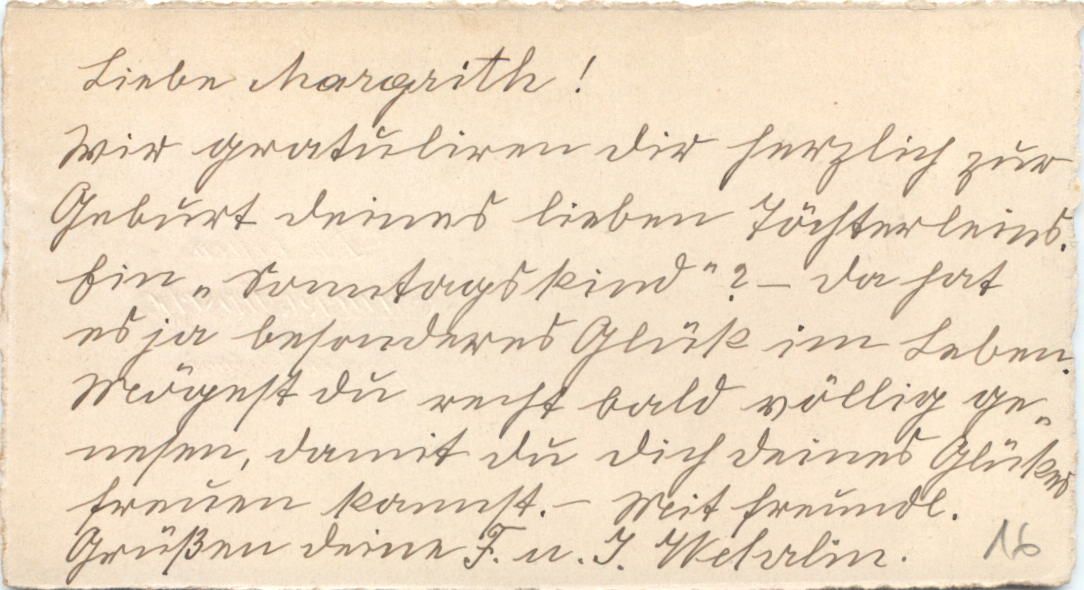 Liebe Margrith!
Wir gratuliren dir herzlich zur
Geburt deines lieben Töchterleins.
Ein „Sonntagskind"? – da hat
es ja besonderes Glük im Leben.
Mögest du recht bald völlig ge-
nesen, damit du dich deines Glükes
freuen kannst. – Mit freundl.
Grüßen deine F. u. J. Wehrlin.
16